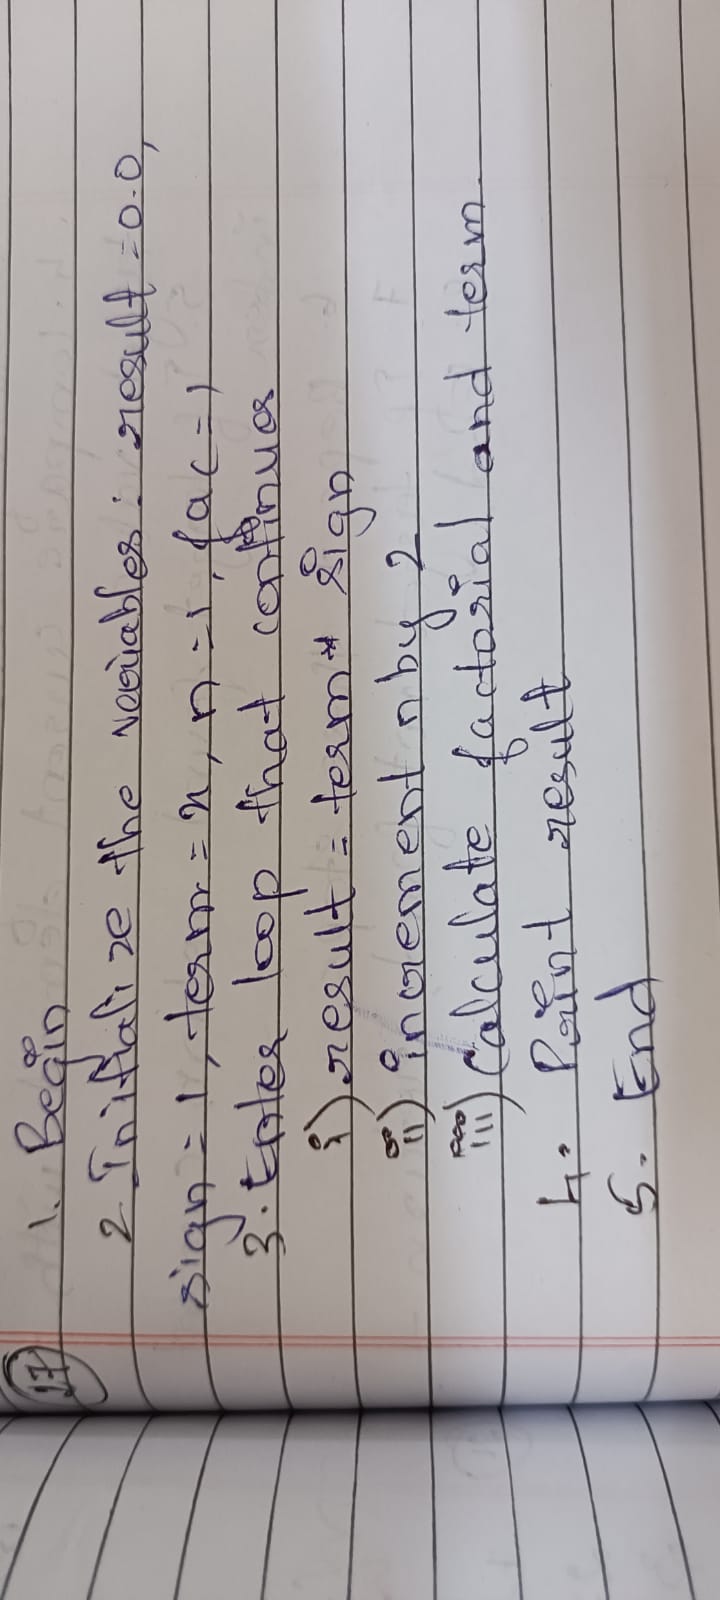 17
1. Begin
2. Initialize the variables: result = 0.0,
sign = 1, term = x, n = 1, fac = 1
3. Enter loop that continues
i) result = term * sign
ii) increment n by 2
iii) Calculate factorial and term.
4. Print result
5. End